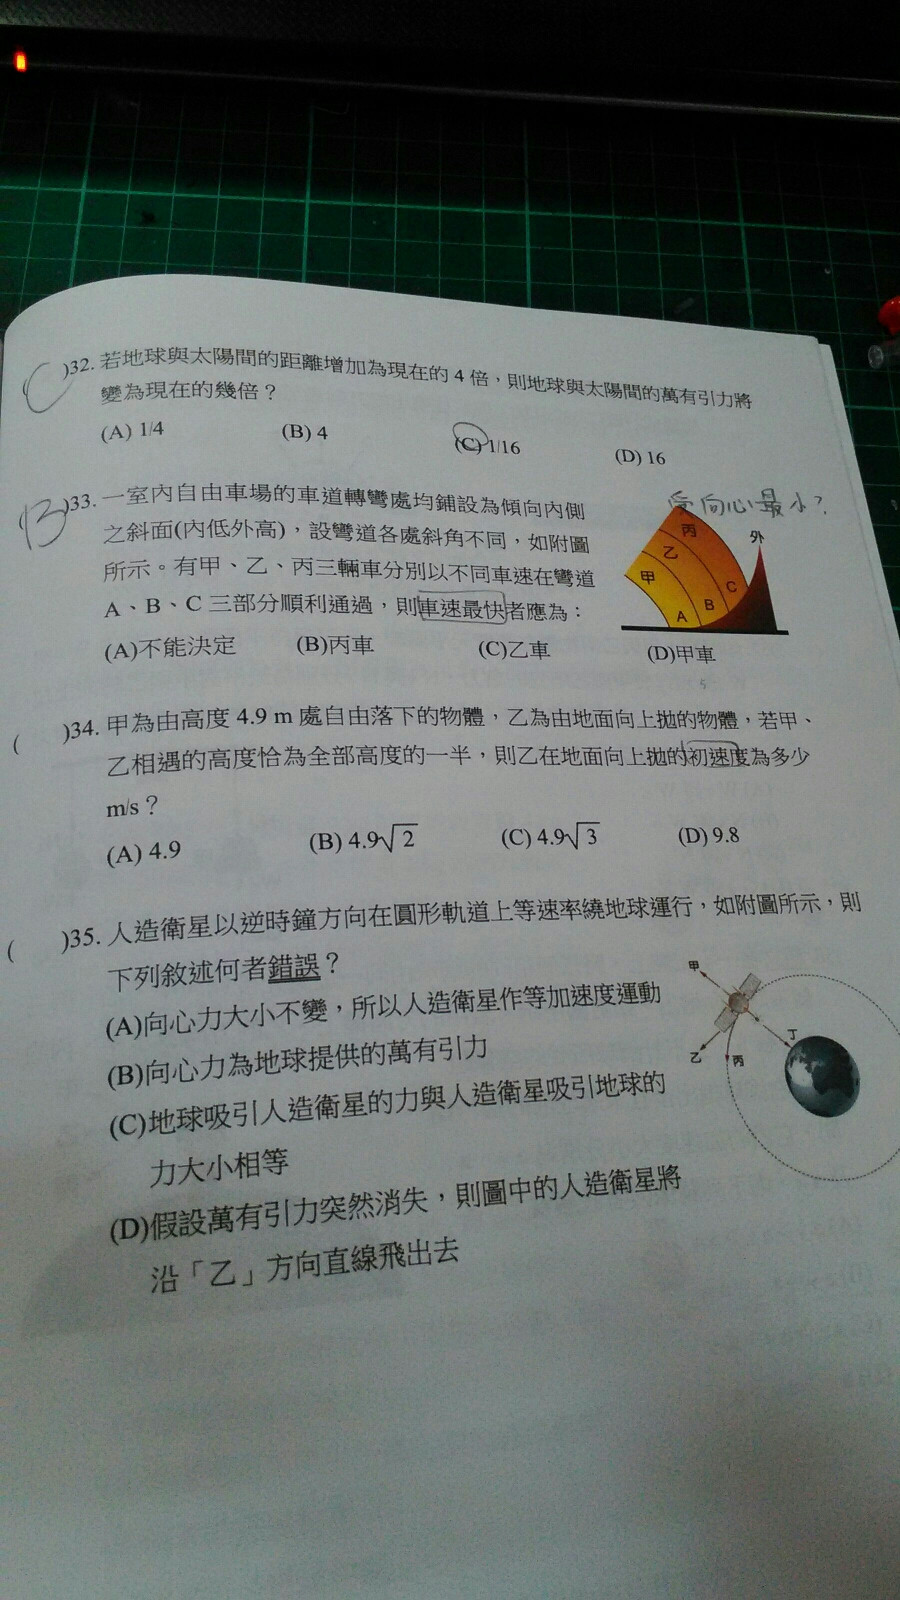 (C)32. 若地球與太陽間的距離增加為現在的 4 倍，則地球與太陽間的萬有引力將
變為現在的幾倍？
(A) 1/4 (B) 4 (C) 1/16 (D) 16
(B)33. 一室內自由車場的車道轉彎處均鋪設為傾向內側
之斜面(內低外高)，設彎道各處斜角不同，如附圖
所示。有甲、乙、丙三輛車分別以不同車速在彎道
A、B、C 三部分順利通過，則車速最快者應為：
(A)不能決定 (B)丙車 (C)乙車 (D)甲車
受向心最小?
丙
乙
甲
外
C
B
A
( )34. 甲為由高度 4.9 m 處自由落下的物體，乙為由地面向上拋的物體，若甲、
乙相遇的高度恰為全部高度的一半，則乙在地面向上拋的初速度為多少
m/s？
(A) 4.9 (B) 4.9√2 (C) 4.9√3 (D) 9.8
( )35. 人造衛星以逆時鐘方向在圓形軌道上等速率繞地球運行，如附圖所示，則
下列敘述何者錯誤？
(A)向心力大小不變，所以人造衛星作等加速度運動
(B)向心力為地球提供的萬有引力
(C)地球吸引人造衛星的力與人造衛星吸引地球的
力大小相等
(D)假設萬有引力突然消失，則圖中的人造衛星將
沿「乙」方向直線飛出去
甲
乙
丙
丁